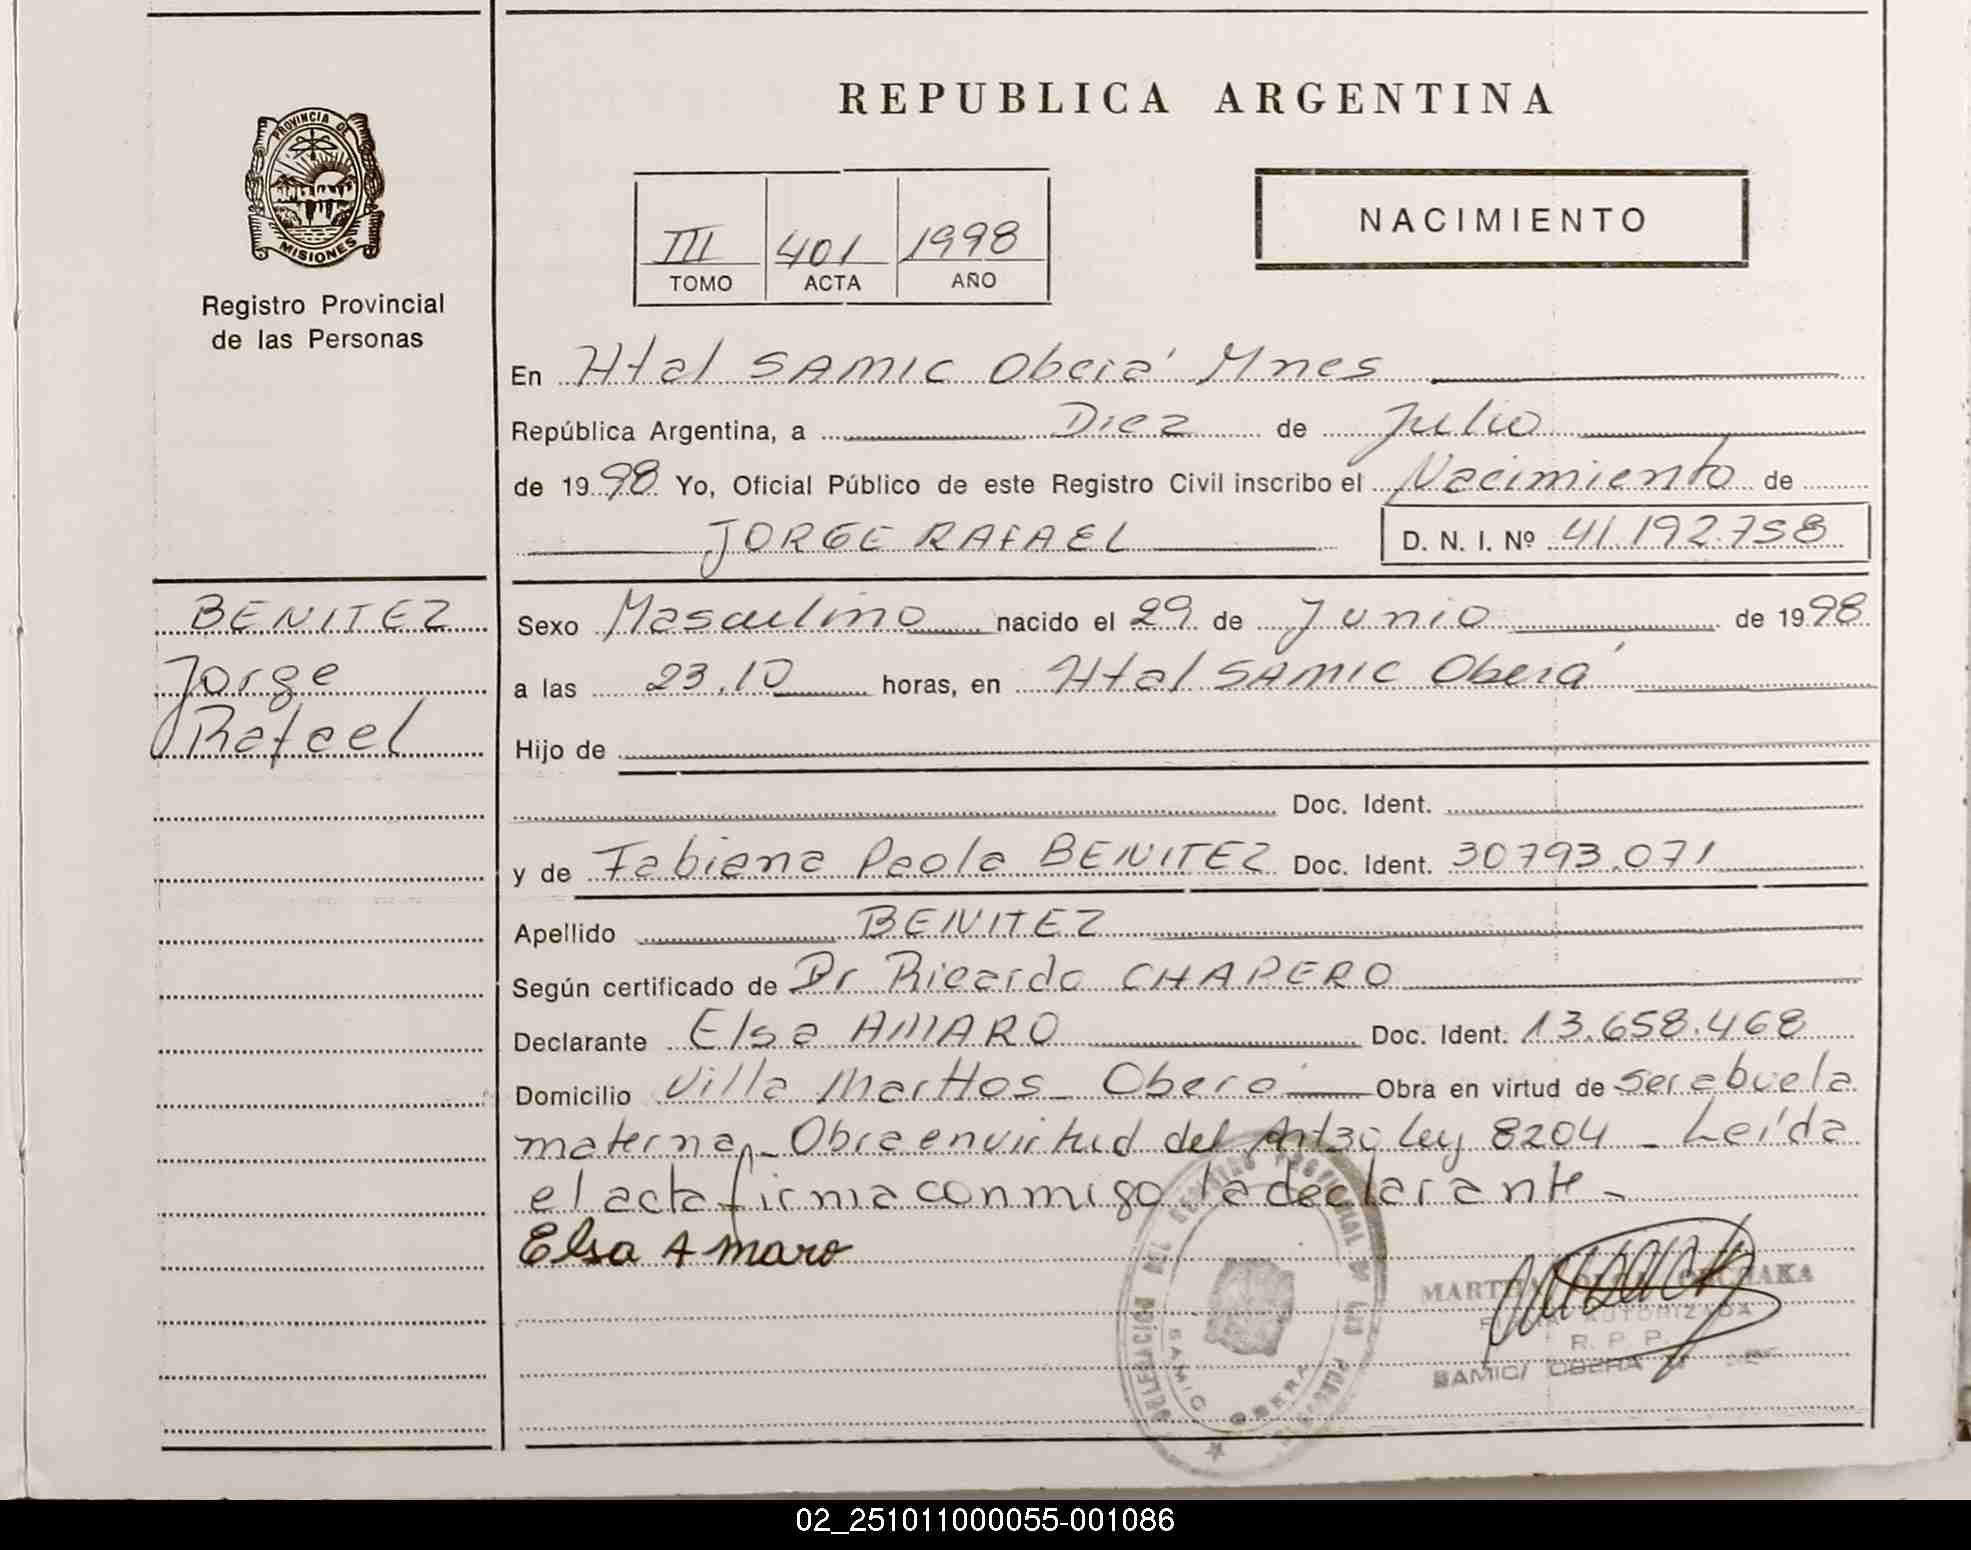 REPUBLICA ARGENTINA
PROVINCIA DE
MISIONES
Registro Provincial
de las Personas
III 401 1998
TOMO ACTA AÑO
NACIMIENTO
En Htal SAMIC Oberá Mnes
República Argentina, a Diez de Julio
de 1998 Yo, Oficial Público de este Registro Civil inscribo el Nacimiento de
JORGE RAFAEL D. N. I. Nº 41.192.758
BENITEZ
Jorge
Rafael
Sexo Masculino nacido el 29 de Junio de 1998
a las 23.10 horas, en Htal SAMIC Oberá
Hijo de
Doc. Ident.
y de Fabiana Paola BENITEZ Doc. Ident. 30793.071
Apellido BENITEZ
Según certificado de Dr Ricardo CHAPERO
Declarante Elsa AMARO Doc. Ident. 13.658.468
Domicilio Villa Marttos - Oberá Obra en virtud de ser abuela
materna - Obra en virtud del Art 30 Ley 8204 - Leída
el acta firma conmigo la declarante -
Elsa Amaro
DELEGACIÓN DEL REGISTRO PROVINCIAL DE LAS PERSONAS
SAMIC OBERA
MARTHA
FIRMA AUTORIZADA
R. P. P.
SAMIC/ OBERA
02_251011000055-001086